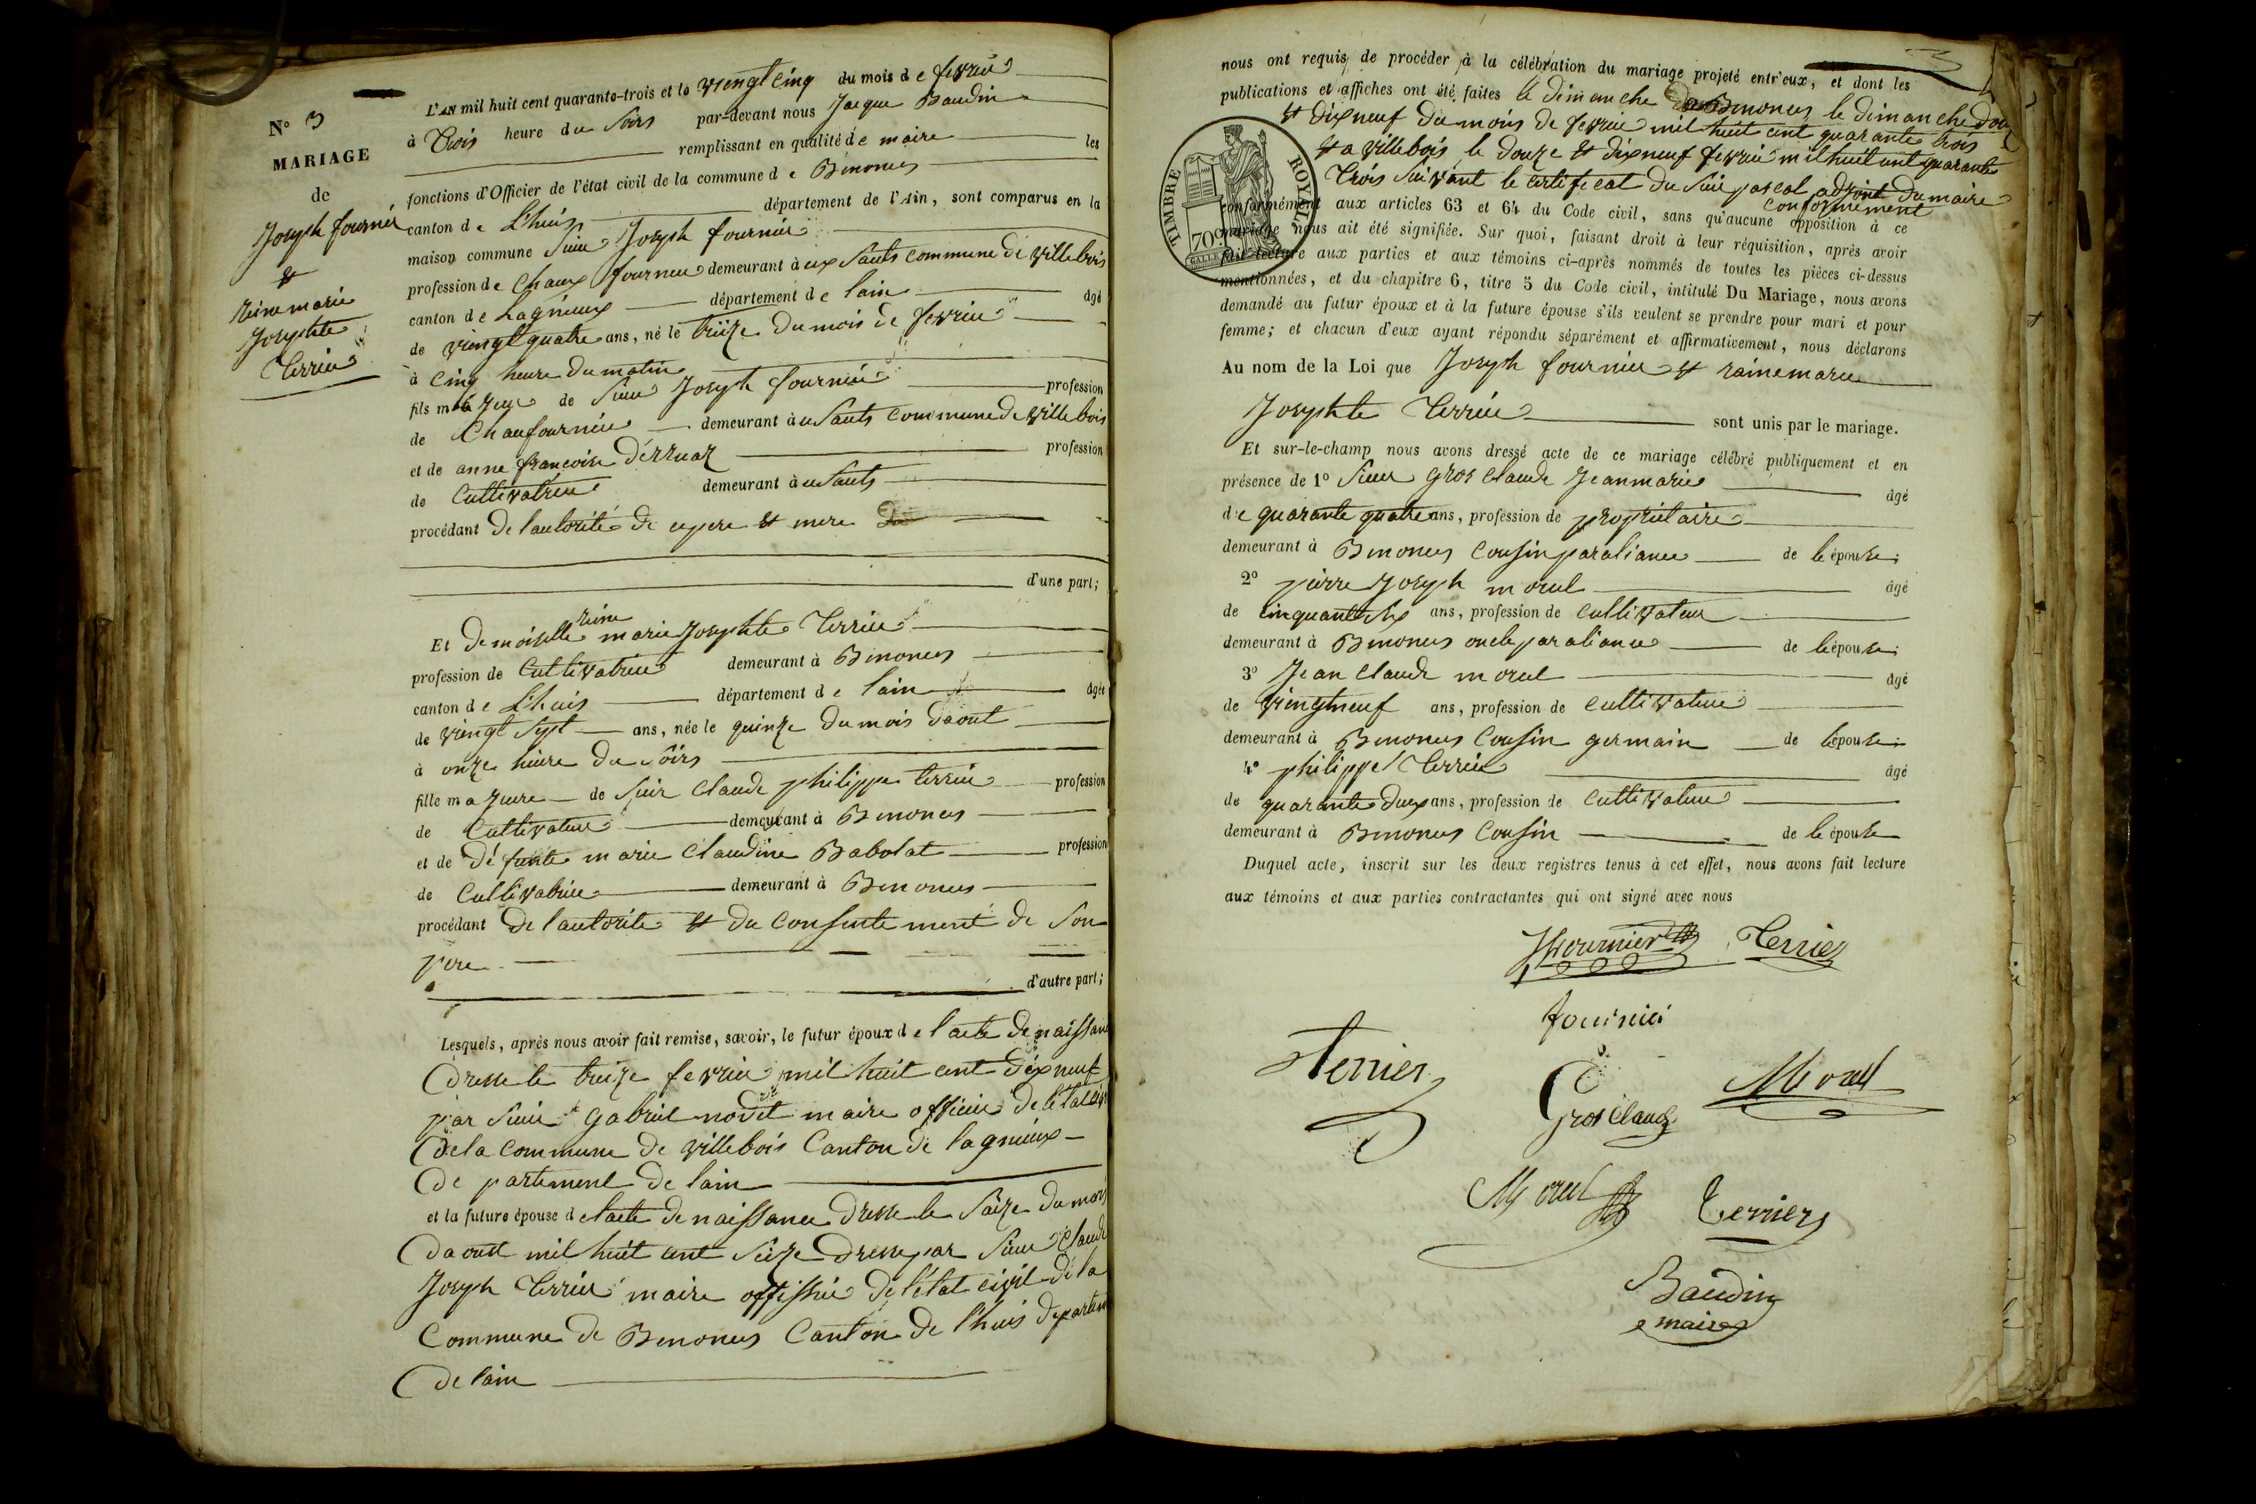 N° 3
MARIAGE
de
Joseph fournier
et
reine marie
Josephte
Terrier
L'AN mil huit cent quarante-trois et le vingt cinq du mois de fevrier
à Trois heure du Soirs par-devant nous Jacque Baudin
remplissant en qualité de maire les
fonctions d'Officier de l'état civil de la commune de Benonces
canton de L'huis département de l'Ain, sont comparus en la
maison commune Sieur Joseph fournier
profession de chaux fournier demeurant à ux Sauts commune de villebois
canton de Lagnieux département de lain agé
de vingt quatre ans, né le treize du mois de fevrier
à cinq heure du matin
fils majeur de Sieur Joseph fournier profession
de Chaufournier demeurant à u Sauts commune de villebois
et de anne françoise Derruaz profession
de Cultivatrice demeurant à u Sauts
procédant de lautorité de ces pere et mere
d'une part;
Et demoiselle reine marie Josephte Terrier
profession de Cultivatrice demeurant à Benonces
canton de L'huis département de lain agée
de vingt Sept ans, née le quinze du mois daout
à onze heure du Soirs
fille majeure de Sieur Claude philippe terrier profession
de Cultivateur demeurant à Benonces
et de défunte marie Claudine Babolat profession
de Cultivatrice demeurant à Benonces
procédant de lautorité et du consentement de Son
pere
d'autre part;
Lesquels, après nous avoir fait remise, savoir, le futur époux de lacte de naissance
dresse le treize fevrier mil huit cent dixneuf
par Sieur gabriel maire officier de létat civil
de la commune de villebois Canton de lagnieux
departement de lain
et la future épouse de lacte de naissance dresse le Saize du mois
daoust mil huit cent Seize dresse par Sieur Claude
Joseph Terrier maire offissier de létat civil de la
Commune de Benonces Canton de l'huis departement
de lain
3
nous ont requis de procéder à la célébration du mariage projeté entr'eux, et dont les
publications et affiches ont été faites le dimanche a Benonces le dimanche douze
et dixneuf du mois de fevrier mil huit cent quarante trois
et a villebois le douze et dixneuf fevrier mil huit cent quarante
Trois Suivant le certificat du Sieur pascal adjoint du maire
conformement
TIMBRE ROYAL
70c
conformément aux articles 63 et 64 du Code civil, sans qu'aucune opposition à ce
mariage nous ait été signifiée. Sur quoi, faisant droit à leur réquisition, après avoir
fait lecture aux parties et aux témoins ci-après nommés de toutes les pièces ci-dessus
mentionnées, et du chapitre 6, titre 5 du Code civil, intitulé Du Mariage, nous avons
demandé au futur époux et à la future épouse s'ils veulent se prendre pour mari et pour
femme; et chacun d'eux ayant répondu séparément et affirmativement, nous déclarons
Au nom de la Loi que Joseph fournier et raine marie
Josephte Terrier sont unis par le mariage.
Et sur-le-champ nous avons dressé acte de ce mariage célébré publiquement et en
présence de 1° Sieur gros Claude Jean marie âgé
de quarante quatre ans, profession de propriétaire
demeurant à Benonces cousin par aliance de lépouse;
2° pierre Joseph morel âgé
de cinquante Six ans, profession de cultivateur
demeurant à Benonces oncle par aliance de lépouse;
3° Jean Claude morel âgé
de vingtneuf ans, profession de cultivateur
demeurant à Benonces Cousin germain de lépouse;
4° philippe Terrier âgé
de quarante deux ans, profession de cultivateur
demeurant à Benonces Cousin de lépouse
Duquel acte, inscrit sur les deux registres tenus à cet effet, nous avons fait lecture
aux témoins et aux parties contractantes qui ont signé avec nous
Jh fournier Terrier
fournier
Terrier
Gros Claude Morel
Morel Terrier
Baudin
maire